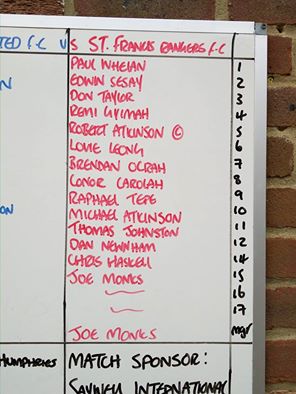 TED F.C VS ST. FRANCIS RANGERS F.C
PAUL WHELAN 1
EDWIN SESAY 2
DON TAYLOR 3
REMI GYIMAH 4
ROBERT ATKINSON © 5
LOUIE LEONG 6
BRENDAN OCRAH 7
CONOR CAROLAH 8
RAPHAEL TEPE 9
MICHAEL ATKINSON 10
THOMAS JOHNSTON 11
DAN NEWNHAM 12
CHRIS HASKELL 14
JOE MONKS 15
16
17
JOE MONKS mgr
HUMPHRIES MATCH SPONSOR:
SAYWELL INTERNATIONAL